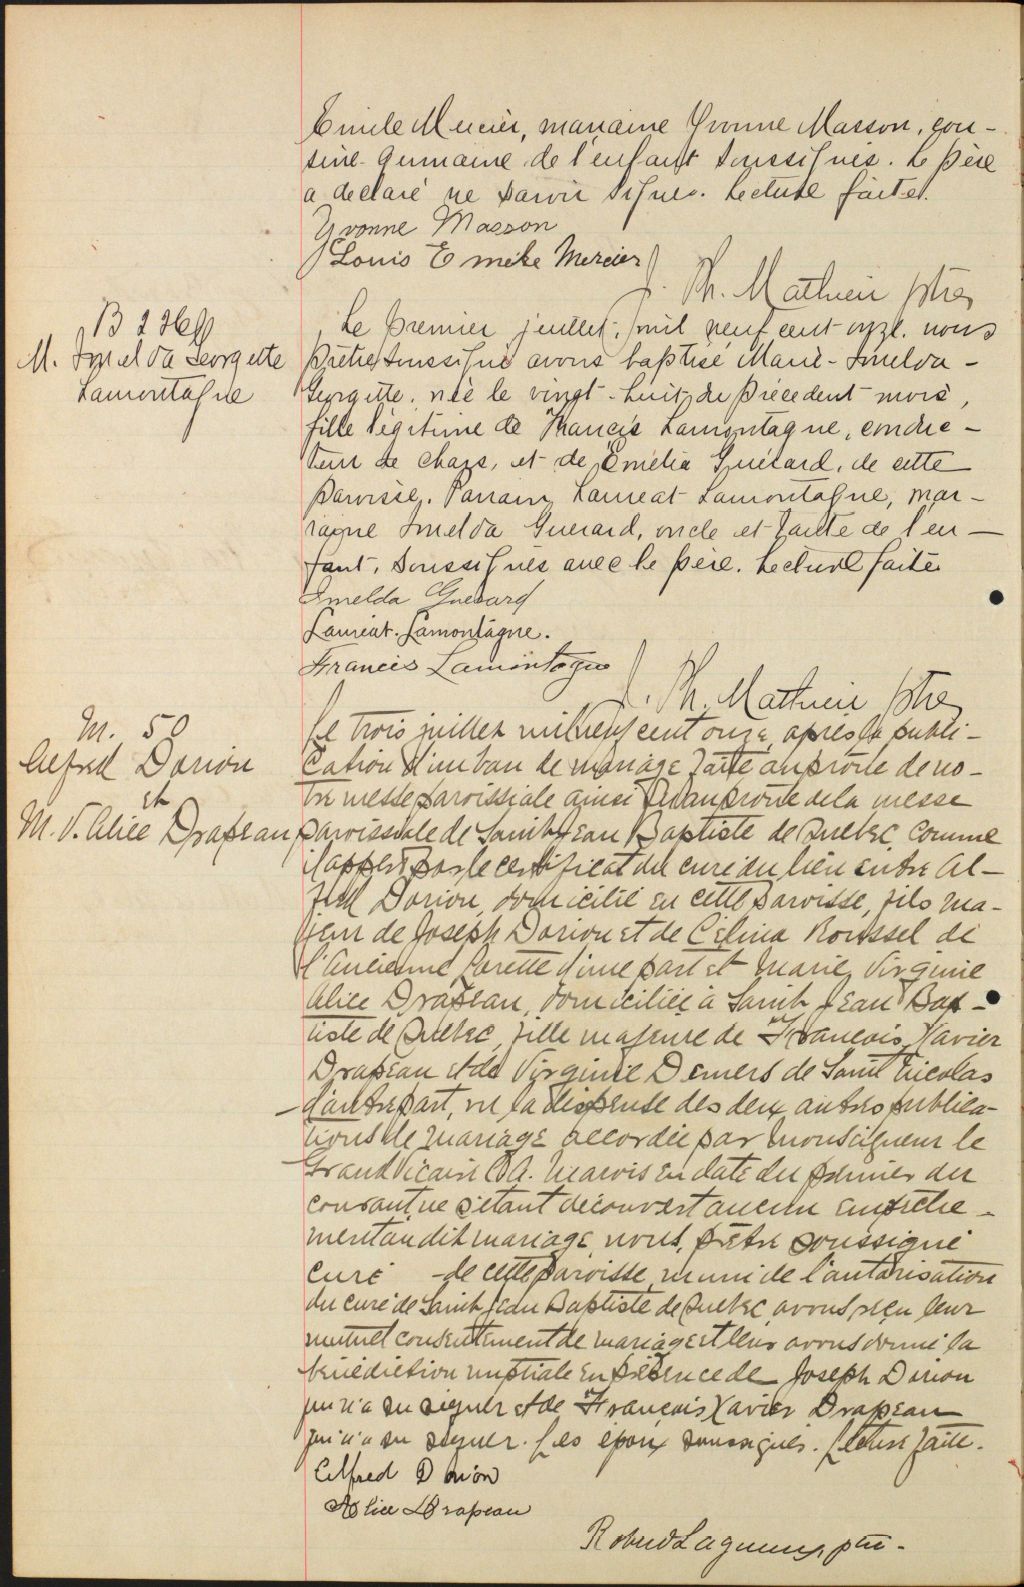 Emile Mercier, marraine Yvonne Masson, cou-
sine germaine de l'enfant soussignés. Le père
a déclaré ne savoir signer. Lecture faite.
Yvonne Masson
Louis Emile Mercier
J. Ph. Mathieu ptre
B
M. Imelda Georgette
Lamontagne
Le premier juillet, mil neuf cent onze, nous
prêtre soussigné avons baptisé Marie-Imelda-
Georgette, née le vingt-huit du précédent mois,
fille légitime de Francis Lamontagne, conduc-
teur de chars, et de Emélia Guérard, de cette
paroisse. Parrain Lauréat Lamontagne, mar-
raine Imelda Guérard, oncle et tante de l'en-
fant, soussignés avec le père. Lecture faite
Imelda Guerard
Lauréat Lamontagne.
Francis Lamontagne
J. Ph. Mathieu ptre
M. 50
Alfred Dorion
et
M. V. Alice Drapeau
Le trois juillet mil neuf cent onze, après la publi-
cation d'un ban de mariage faite au prône de no-
tre messe paroissiale ainsi qu'au prône de la messe
paroissiale de Saint Jean Baptiste de Québec, comme
il appert par le certificat du curé du lieu entre Al-
fred Dorion, domicilié en cette paroisse, fils ma-
jeur de Joseph Dorion et de Célina Roussel de
l'Ancienne Lorette d'une part et Marie Virginie
Alice Drapeau, domiciliée à Saint Jean Bap-
tiste de Québec, fille majeure de François Xavier
Drapeau et de Virginie Demers de Saint Nicolas
d'autre part, vu la dispense des deux autres publica-
tions de mariage accordée par Monseigneur le
Grand Vicaire C. A. Marois en date du premier du
courant, ne s'étant découvert aucun empêche-
ment au dit mariage, nous, prêtre soussigné
curé - de cette paroisse, muni de l'autorisation
du curé de Saint Jean Baptiste de Québec, avons reçu leur
mutuel consentement de mariage et leur avons donné la
bénédiction nuptiale en présence de Joseph Dorion
qui n'a su signer et de François Xavier Drapeau
qui n'a su signer. Les époux soussignés. Lecture faite.
Alfred Dorion
Alice Drapeau
Robert Lagueux, ptre.